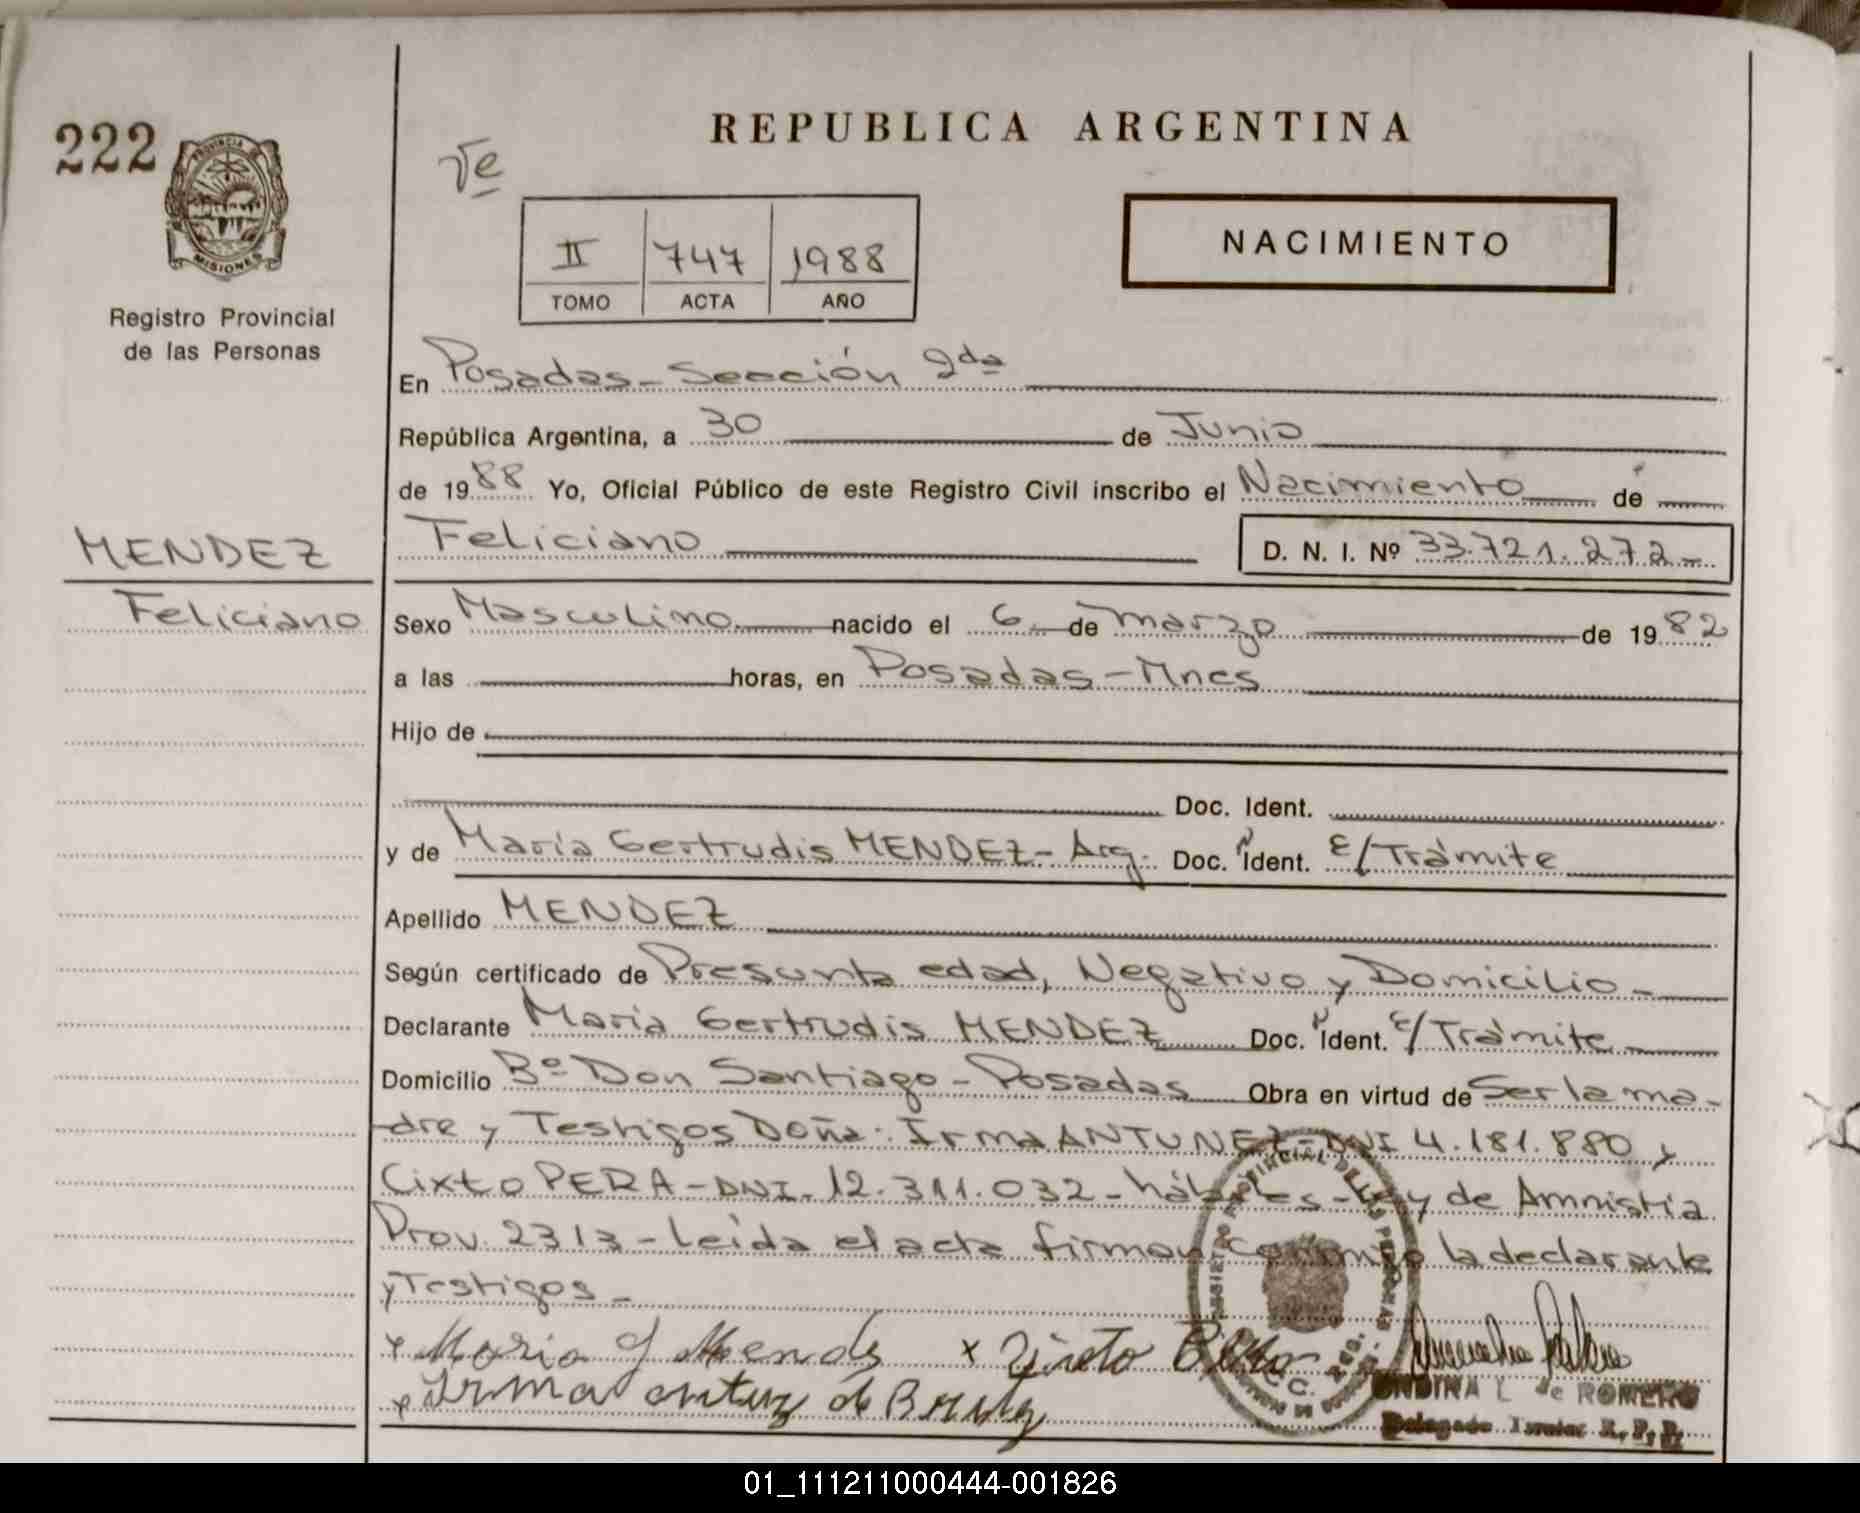 222
PROVINCIA DE
MISIONES
Registro Provincial
de las Personas
REPUBLICA ARGENTINA
II 747 1988
TOMO ACTA AÑO
NACIMIENTO
En Posadas - Sección 2da
República Argentina, a 30 de Junio
de 1988 Yo, Oficial Público de este Registro Civil inscribo el Nacimiento de
Feliciano D. N. I. Nº 33.721.272-
MENDEZ
Feliciano
Sexo Masculino nacido el 6 de marzo de 1982
a las horas, en Posadas - Mnes
Hijo de
Doc. Ident.
y de María Gertrudis MENDEZ - Arg. Doc. Ident. E/Trámite
Apellido MENDEZ
Según certificado de Presunta edad, Negativo y Domicilio -
Declarante María Gertrudis MENDEZ Doc. Ident. E/Trámite
Domicilio Bº Don Santiago - Posadas Obra en virtud de Ser la ma-
dre y Testigos Doña: Irma ANTUNEZ - DNI 4.181.880 y
Cixto PERA - DNI. 12.311.032 - hábiles - Ley de Amnistía
Prov. 2313 - Leída el acta firman conmigo la declarante
y Testigos -
x Maria G Mendes x
x Irma
ONDINA L de ROMERO
Delegado Titular R. P. P.
01_111211000444-001826